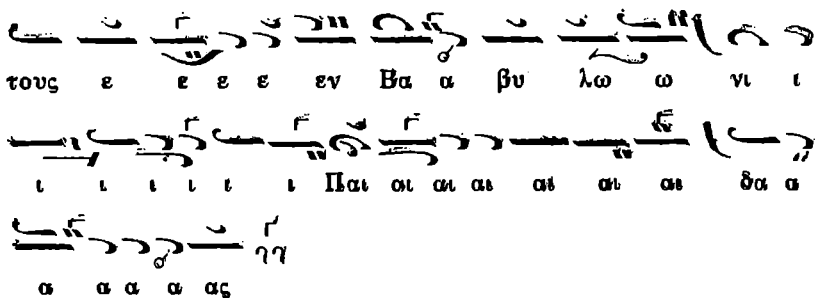 τους ε ε ε ε εν Βα α βυ λω ω νι ι
ι ι ι ι ι ι Παι αι αι αι αι αι αι δα α
α α α α ας